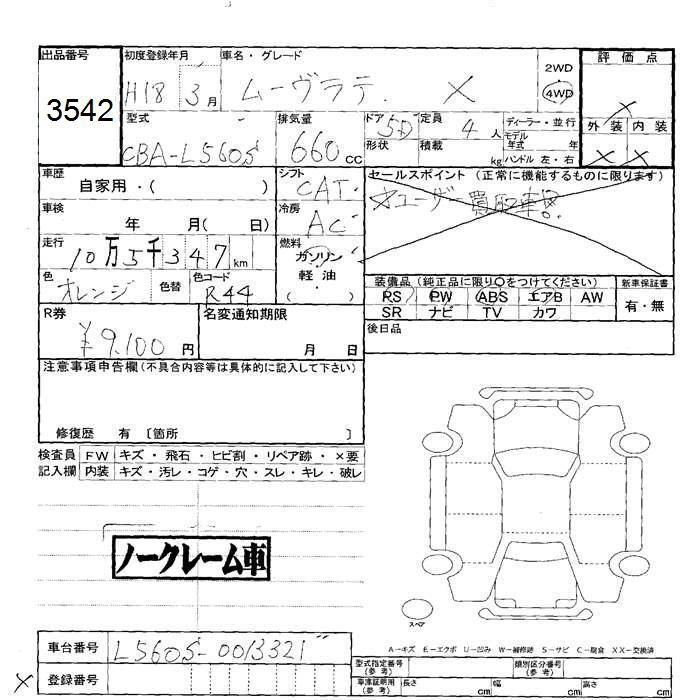 出品番号
3542
初度登録年月
H18 3月
車名・グレード
ムーヴラテ X
2WD
4WD
評価点
×
外装 内装
× ×
型式
CBA-L560S
排気量
660cc
ドア 5D
形状
定員 4人
積載 kg
ディーラー・並行
モデル年式 年
ハンドル 左・右
車歴
自家用・( )
シフト
CAT
セールスポイント (正常に機能するものに限ります)
ユーザー買取車!!
車検
年 月( 日)
冷房
AC
走行
10万5千347km
燃料
ガソリン
軽油
( )
色
オレンジ
色替
色コード
R44
装備品(純正品に限り○をつけてください)
PS PW ABS エアB AW
SR ナビ TV カワ
新車保証書
有・無
R券
¥9,100円
名変通知期限
月 日
後日品
注意事項申告欄(不具合内容等は具体的に記入して下さい)
修復歴 有 〔箇所 〕
検査員記入欄
FW キズ・飛石・ヒビ割・リペア跡・×要
内装 キズ・汚レ・コゲ・穴・スレ・キレ・破レ
ノークレーム車
スペア
A-キズ E-エクボ U-凹み W-補修跡 S-サビ C-腐食 XX-交換済
車台番号 L560S-0013321
× 登録番号
型式指定番号(参考)
類別区分番号(参考)
車庫証明用(参考) 長さ cm 幅 cm 高さ cm